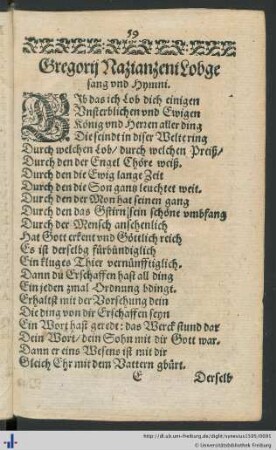 59
Gregorij Nazianzeni Lobge
sang vnd Hymni.
GIb das ich Lob dich einigen
Vnsterblichen vnd Ewigen
König vnd Herren aller ding
Die seindt in diser Welt ring
Durch welchen Lob/ durch welchen Preiß/
Durch den der Engel Chöre weiß.
Durch den die Ewig lange Zeit
Durch den die Son gantz leuchtet weit.
Durch den der Mon hat seinen gang
Durch den das Gstirn sein schöne vmbfang
Durch der Mensch ansehenlich
Hat Gott erkent vnd Göttlich reich
Es ist derselbg fürbündiglich
Ein kluges Thier vernünfftiglich.
Dann du Erschaffen hast all ding
Ein jeden zmal Ordnung bdingt.
Erhaltst mit der Vorsehung dein
Die ding von dir Erschaffen seyn
Ein Wort hast geredt: das Werck stund dar
Dein Wort/ dein Sohn mit dir Gott war.
Dann er eins Wesens ist mit dir
Gleich Ehr mit dem Vattern gbürt.
E Derselb
http://dl.ub.uni-freiburg.de/diglit/synesius1595/0095
© Universitätsbibliothek Freiburg